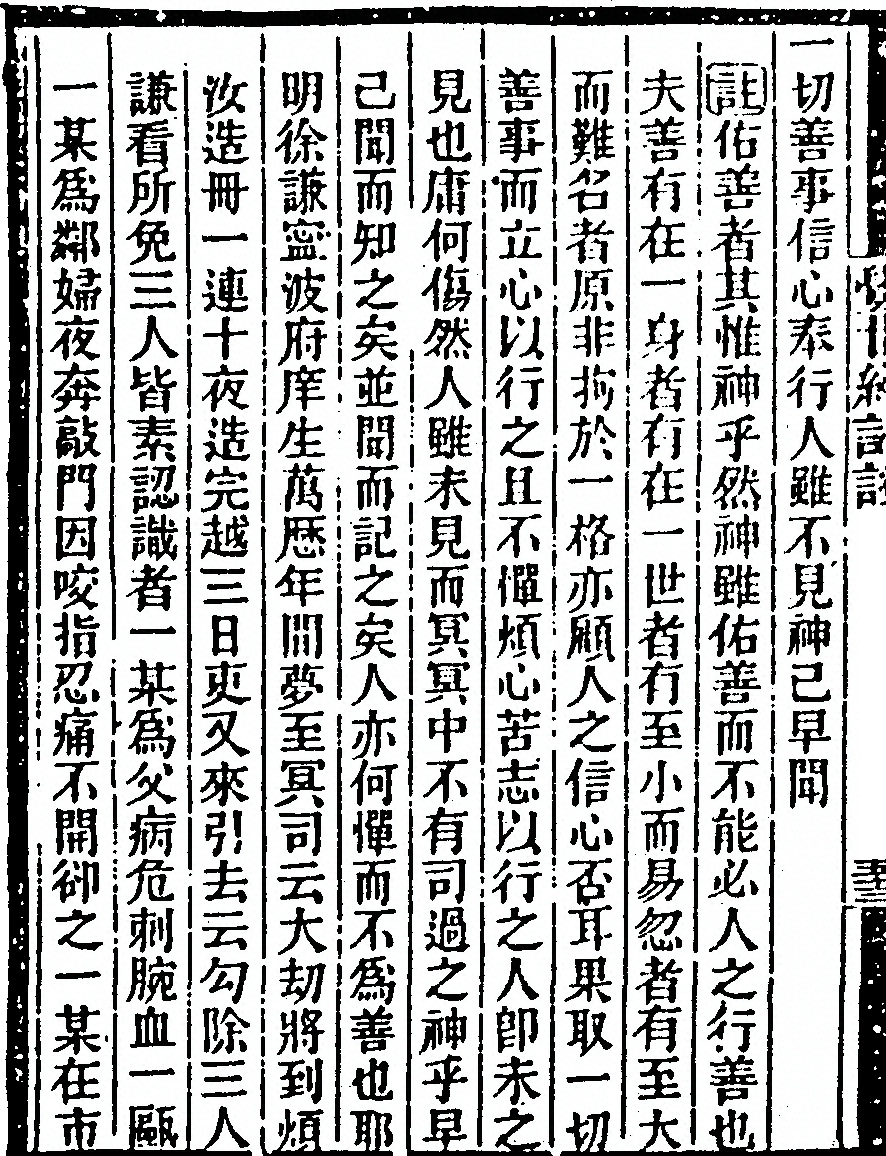 一切善事信心奉行人雖不見神己早聞
註佑善者其惟神乎然神雖佑善而不能必人之行善也
夫善有在一身者有在一世者有至小而易忽者有至大
而難名者原非拘於一格亦顧人之信心否耳果取一切
善事而立心以行之且不憚煩心苦志以行之人卽未之
見也庸何傷然人雖未見而冥冥中不有司過之神乎早
己聞而知之矣並聞而記之矣人亦何憚而不爲善也耶
明徐謙寧波府庠生萬歷年間夢至冥司云大劫將到煩
汝造冊一連十夜造完越三日吏又來引去云勾除三人
謙看所免三人皆素認識者一某爲父病危刺腕血一甌
一某爲鄰婦夜奔敲門因咬指忍痛不開卻之一某在市